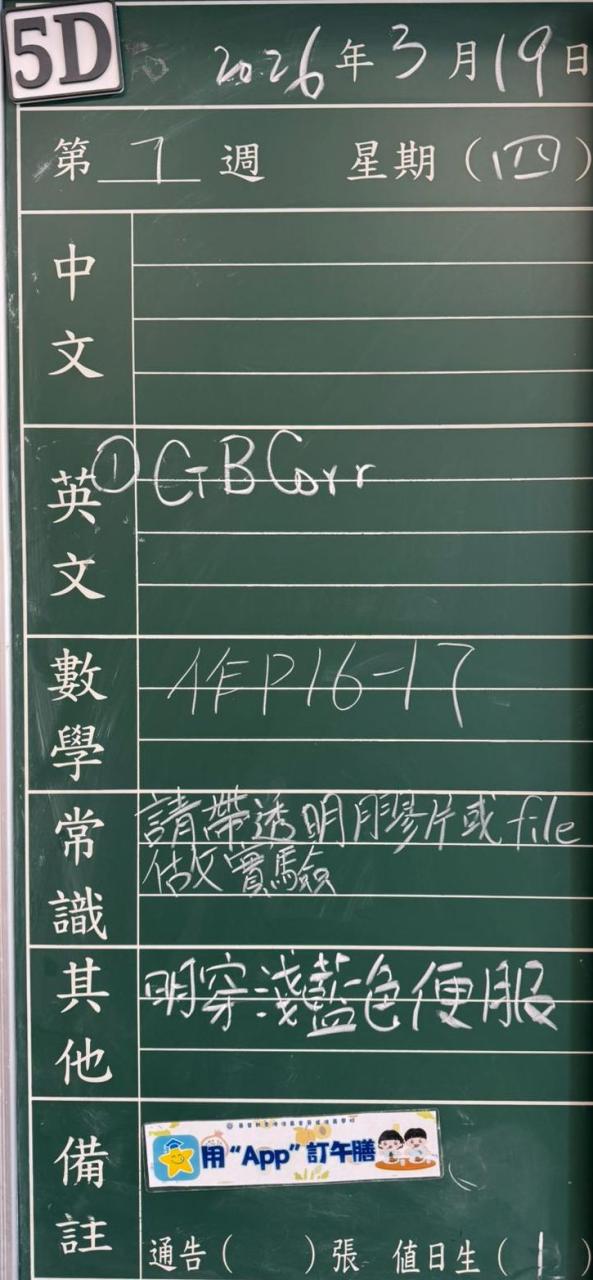 5D
2026年3月19日
第7週 星期(四)
中文
英文 ①GB Corr
數學 作P16-17
常識 請帶透明膠片或file
做實驗
其他 明穿淺藍色便服
備註
用“App”訂午膳
通告( )張 值日生(1)